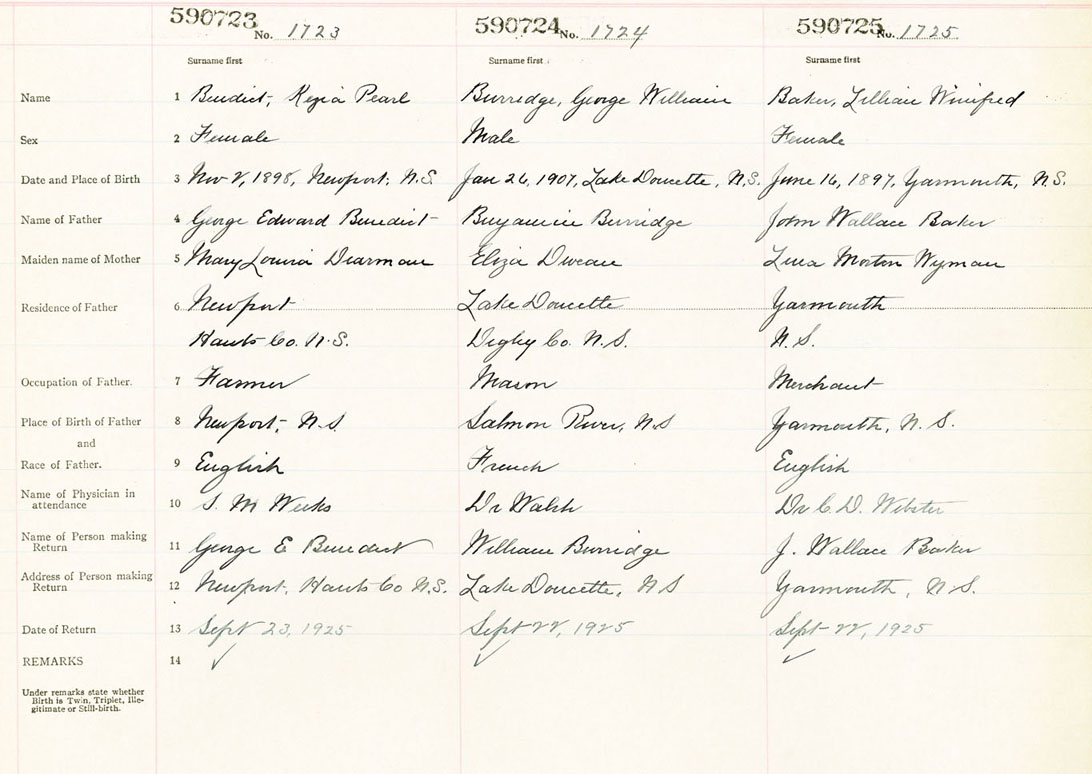 590723 No. 1723 590724 No. 1724 590725 No. 1725
Surname first Surname first Surname first
Name 1 Benedict, Kezia Pearl Burridge, George William Baker, Lillian Winifred
Sex 2 Female Male Female
Date and Place of Birth 3 Nov 2, 1898, Newport, N.S. Jan 26, 1907, Lake Doucette, N.S. June 16, 1897, Yarmouth, N.S.
Name of Father 4 George Edward Benedict Benjamin Burridge John Wallace Baker
Maiden name of Mother 5 Mary Louisa Dearman Eliza Deveau Morton Wyman
Residence of Father 6 Newport Lake Doucette Yarmouth
Hants Co. N.S. Digby Co. N.S. N.S.
Occupation of Father. 7 Farmer Mason Merchant
Place of Birth of Father 8 Newport, N.S Salmon River, N.S Yarmouth, N.S.
and
Race of Father. 9 English French English
Name of Physician in
attendance 10 S. M Weeks Dr Walsh Dr C. D. Webster
Name of Person making
Return 11 George E Benedict William Burridge J. Wallace Baker
Address of Person making
Return 12 Newport, Hants Co N.S. Lake Doucette, NS Yarmouth, N.S.
Date of Return 13 Sept 23, 1925 Sept 22, 1925 Sept 22, 1925
REMARKS 14 ✓ ✓ ✓
Under remarks state whether
Birth is Twin, Triplet, Ille-
gitimate or Still-birth.